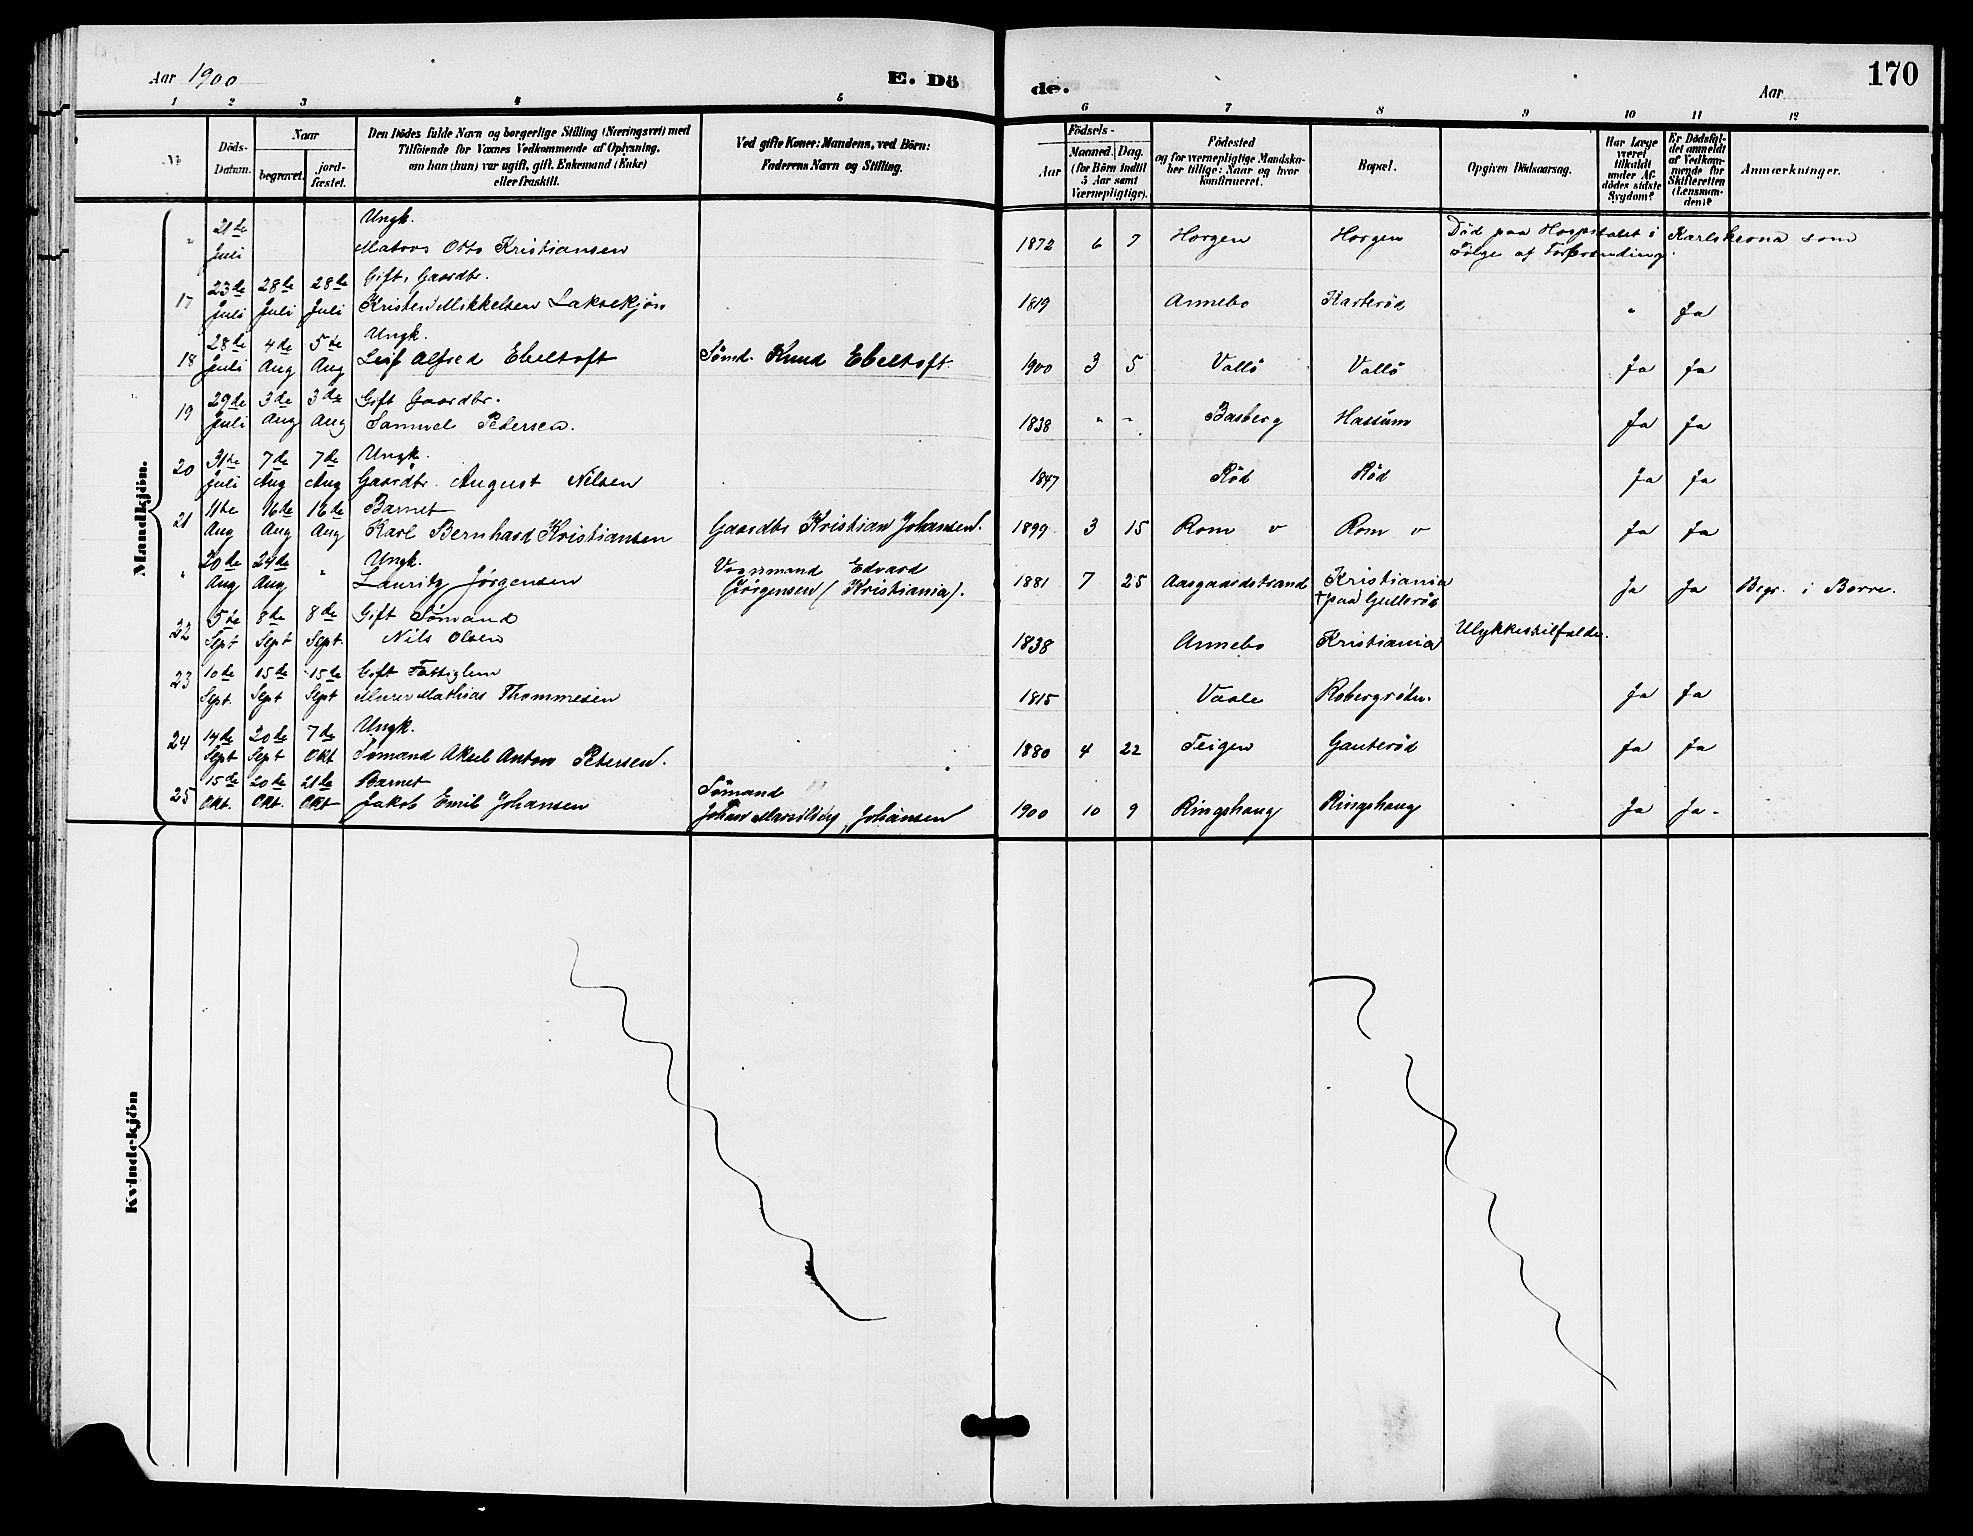 Aar 1900
E. Dö
de.
Aar
170
1 2 3 4 5 6 7 8 9 10 11 12
No
Döds-
Datum.
Naar
begravet.
jord-
fæstet.
Den Dödes fulde Navn og borgerlige Stilling (Næringsvei) med
Tilföiende for Voxnes Vedkommende af Oplysning,
om han (hun) var ugift, gift, Enkemand (Enke)
eller fraskilt.
Ved gifte Koner: Mandens, ved Börn:
Faderens Navn og Stilling.
Födsels-
Aar
Maaned. Dag.
(for Börn indtil
5 Aar samt
Værnepligtige).
Födested
og for værnepligtige Mandska-
ber tillige: Naar og hvor
Konfirmeret.
Bopæl.
Opgiven Dödsaarsag.
Har Læge
været
tilkaldt
under Af-
dödes sidste
Sygdom?
Er Dödsfal-
det anmeldt
af Vedkom-
mende for
Skifteretten
(Lensman-
den)?
Anmærkninger.
Mandkjön.
" 21de Juli Ungk.
Matros Otto Kristiansen 1872 6 7 Horgen Horgen Död paa Hospitalet i Karlskrona som
Følge af Forbrænding.
17 23de Juli 28de Juli 28de Juli Gift, Gaardbr.
Kristen Mikkelsen Laksekjön 1819 Annebo Karterød " Ja
18 28de Juli 4de Aug 5te Aug Ungk.
Leif Alfred Ebeltoft Sömd. Knud Ebeltoft. 1900 3 5 Vallö Vallö Ja Ja
19 29de Juli 3de Aug 3de Aug Gift Gaardbr.
Samuel Petersen. 1838 " " Basberg Hassum Ja Ja
20 31te Juli 7de Aug 7de Aug Ungk.
Gaardbr. August Nilsen 1847 Rød Rød Ja Ja
21 11te Aug 16de Aug 16de Aug Barnet
Karl Bernhard Kristiansen Gaardbr Kristian Johansen. 1899 3 15 Rom v Rom v Ja Ja
" 20de Aug 24de Aug " Ungk.
Lauritz Jørgensen Vognmand Edvard
Jørgensen (Kristiania). 1881 7 25 Aasgaardstrand Kristiania
† paa Gullerød Ja Ja Begr. i Borre.
22 5te Sept 8de Sept 8de Sept. Gift Sømand
Nils Olsen 1838 Annebo Kristiania Ulykkestilfælde.
23 10de Sept. 15de Sept 15de Sept Gift Fattiglem
Murer Mathias Thommesen 1815 Vaale Robergrødn. Ja Ja
24 14de Sept 20de Sept 7de Okt Ungk.
Sømand Aksel Anton Petersen. 1880 4 22 Teigen Gauterød Ja Ja
25 15de Okt. 20de Okt. 21de Okt Barnet
Jakob Emil Johansen Sömand
Johan Johansen 1900 10 9 Ringshaug Ringshaug Ja Ja -
Kvindekjön